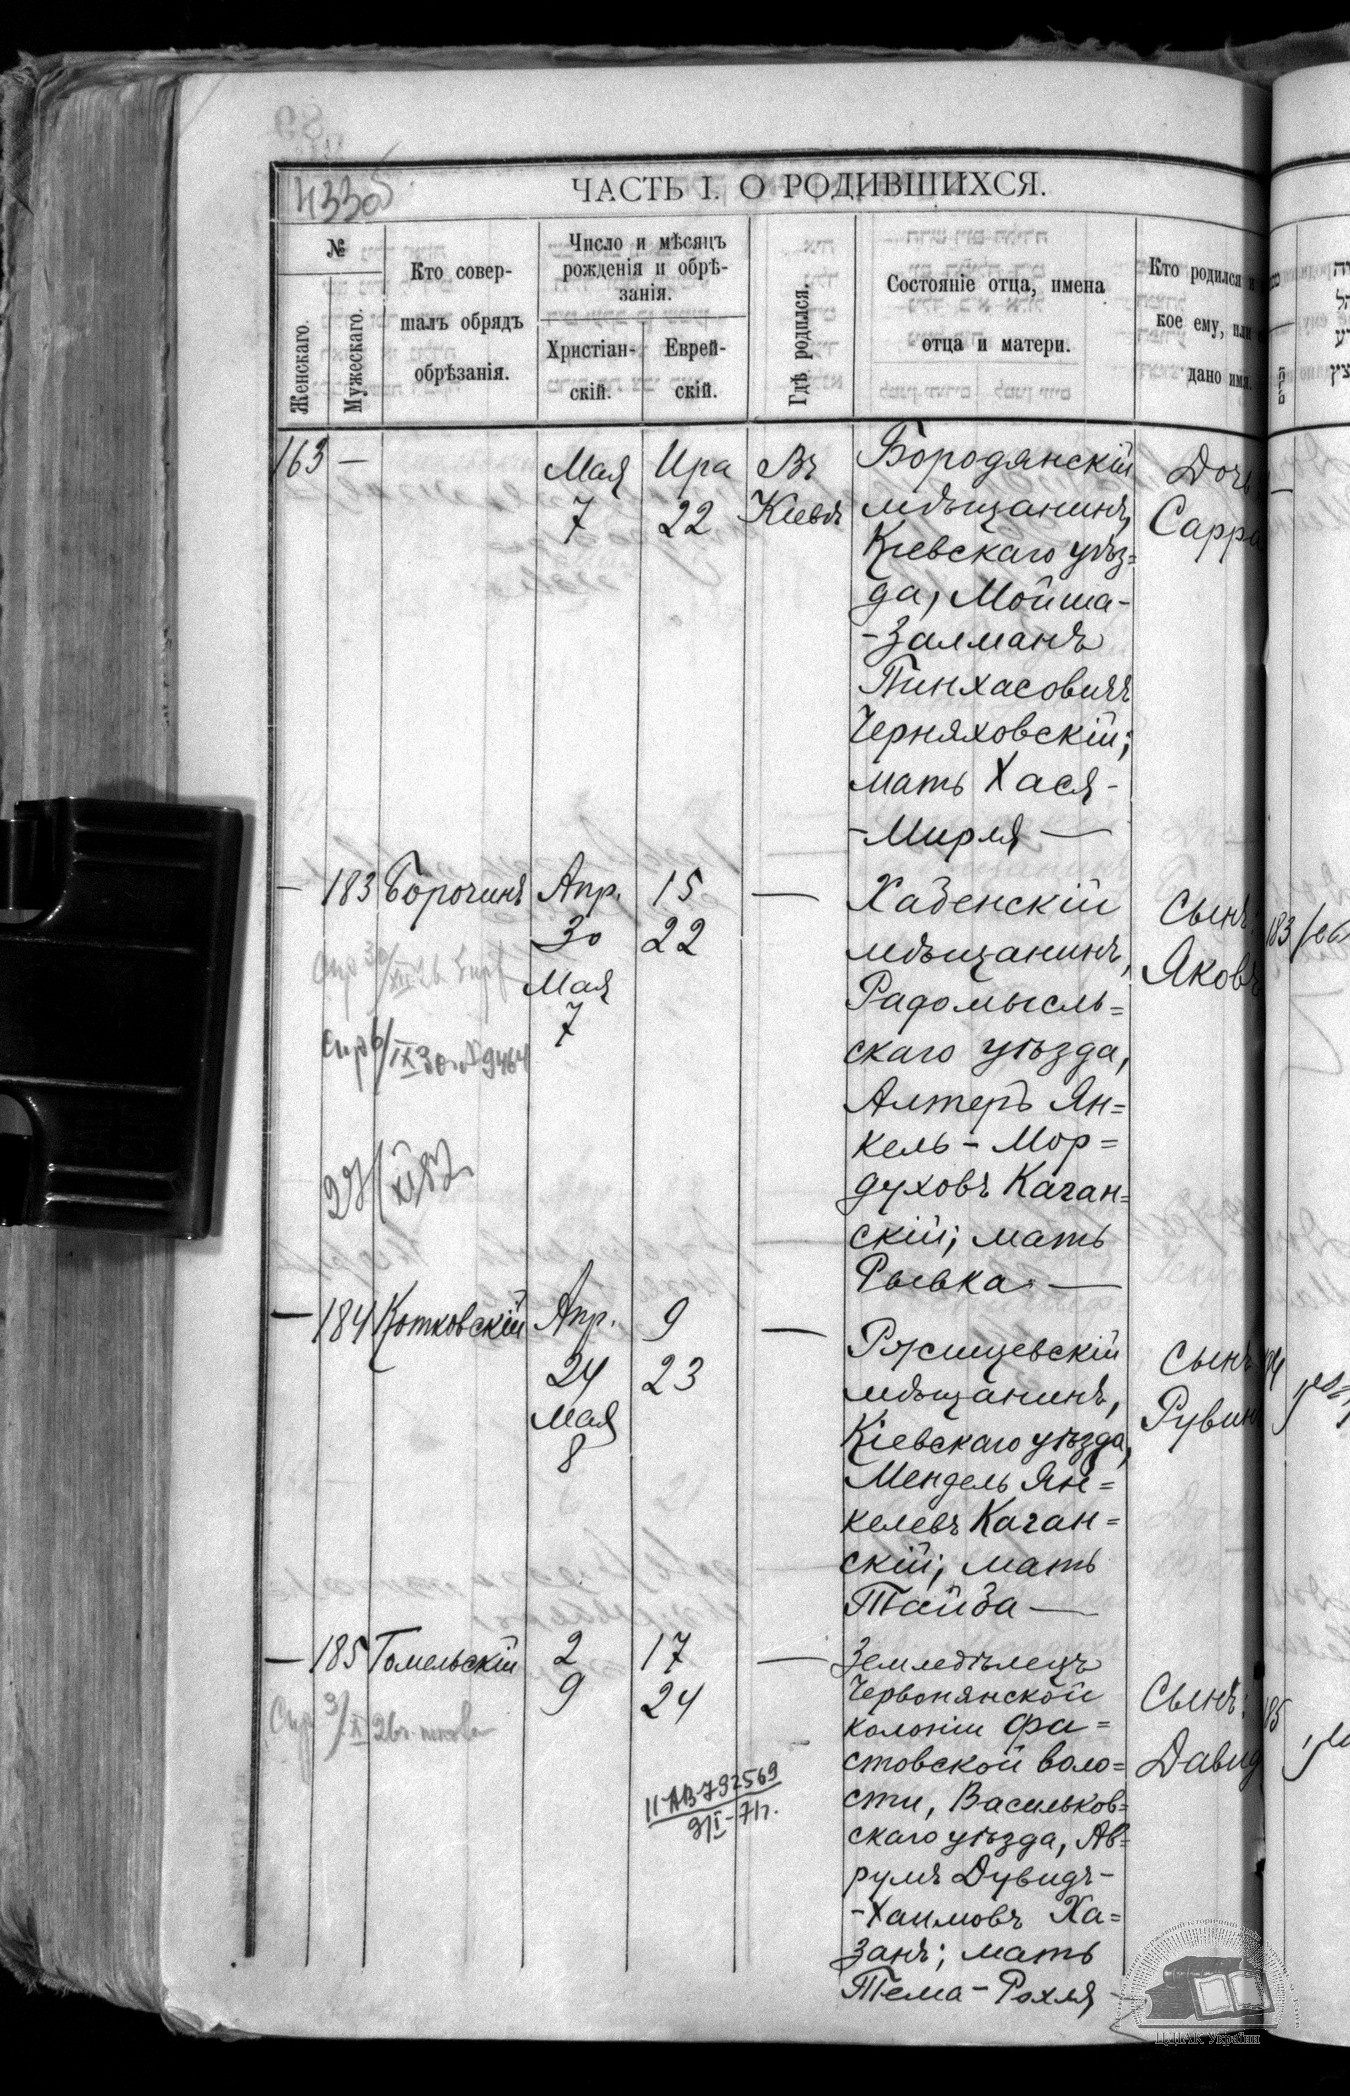 433об
ЧАСТЬ I. О РОДИВШИХСЯ.
№
Женскаго.
Мужескаго.
Кто совер-
шалъ обрядъ
обрѣзанія.
Число и мѣсяцъ
рожденія и обрѣ-
занія.
Христіан-
скій.
Еврей-
скій.
Гдѣ родился.
Состояніе отца, имена
отца и матери.
Кто родился и
кое ему, или
дано имя.
163 —
Мая
7
Ира
22
Въ
Кіевѣ
Бородянскій
мѣщанинъ,
Кіевскаго уѣз=
да, Мойша-
-Залманъ
Пинхасовичъ
Черняховскій;
мать Хася-
-Мирля —
Дочь
Сарра
— 183 Борочинъ
Апр.
30
Мая
7
15
22
—
Хабенскій
мѣщанинъ,
Радомысль=
скаго уѣзда,
Алтеръ Ян=
кель-Мор=
духовъ Каган=
скій; мать
Рывка —
Сынъ
Яковъ
183
— 184 Котковскій
Апр.
24
Мая
8
9
23
—
Ржищевскій
мѣщанинъ,
Кіевскаго уѣзда,
Мендель Ян=
келевъ Каган=
скій; мать
Тайба —
Сынъ
Рувинъ
— 185 Гомельскій
2
9
17
24
—
Земледѣлецъ
Червонянской
колоніи Фа=
стовской воло=
сти, Васильков=
скаго уѣзда, Ав=
румъ Дувидъ-
-Хаимовъ Ха=
занъ; мать
Тема-Рохля —
Сынъ:
Давид
II-АВ-792569
9/I-71г.
ЦДІАК України